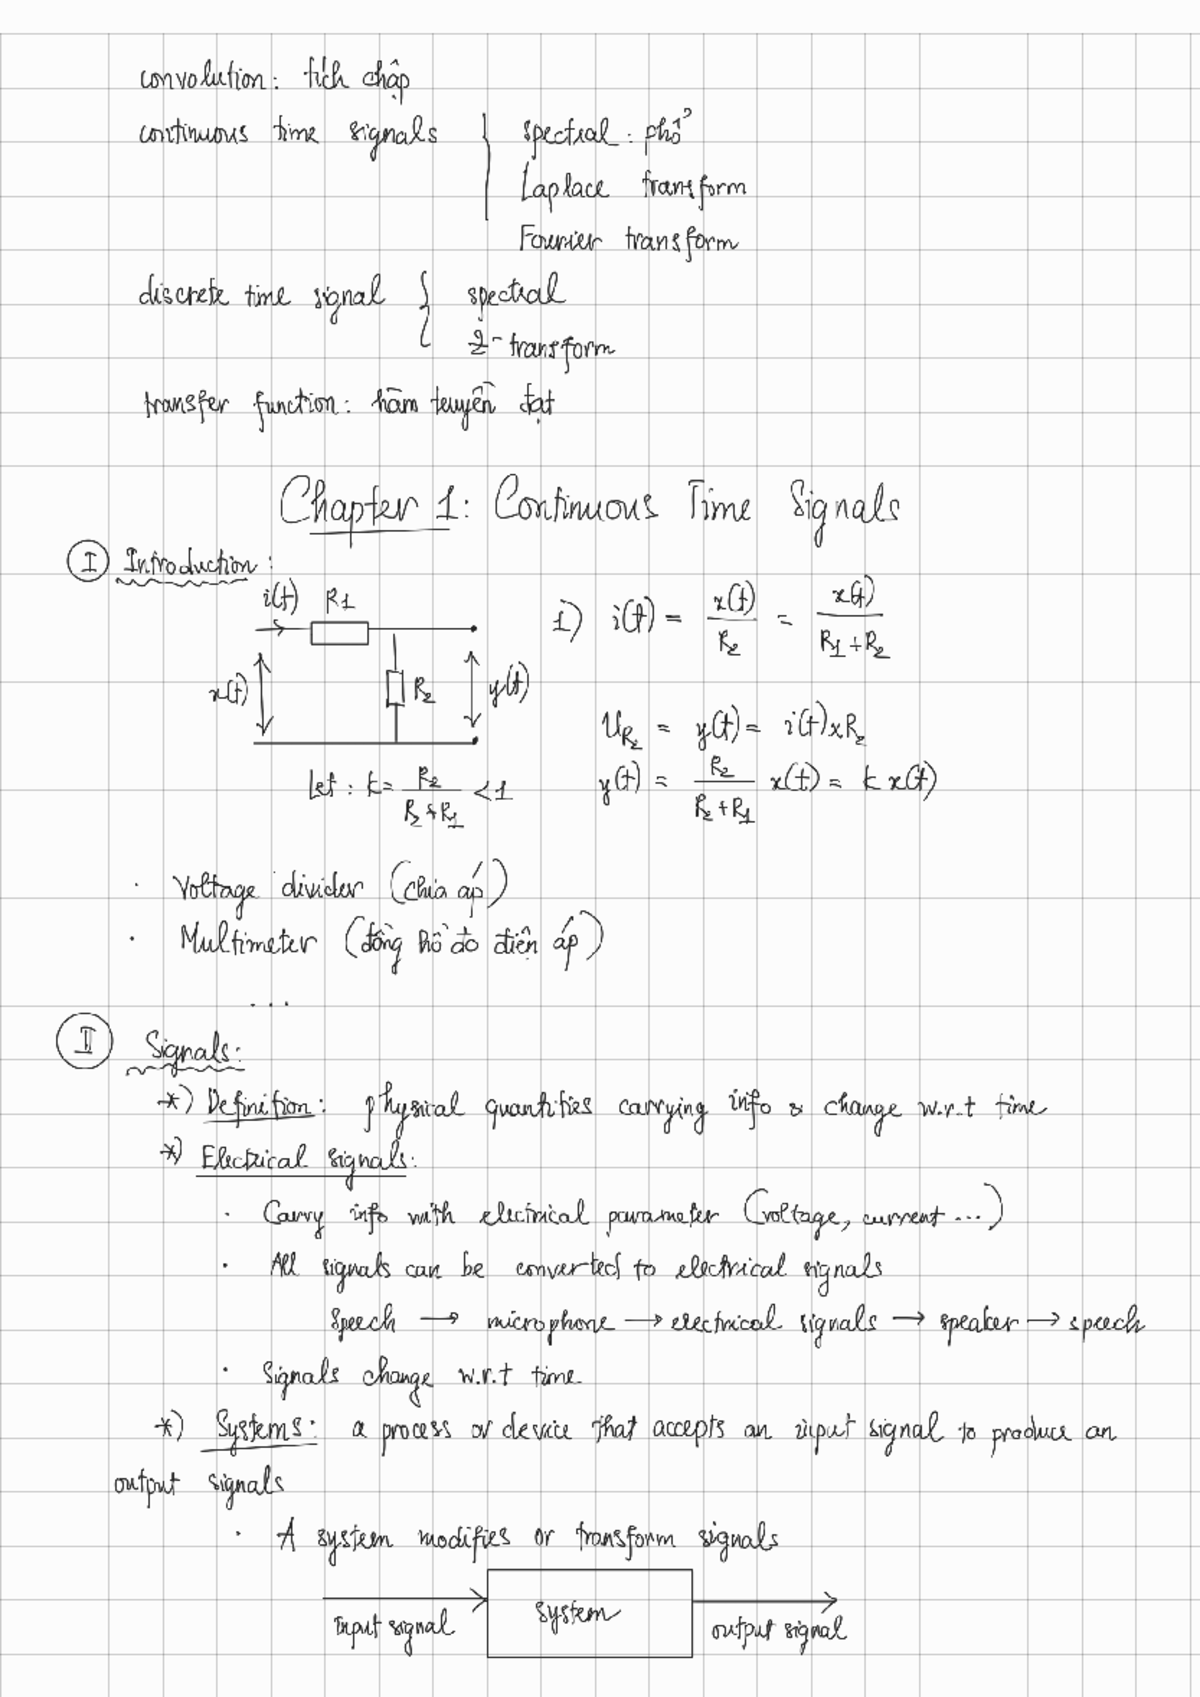 convolution: tích chập
continuous time signals { spectral: phổ
Laplace transform
Fourier transform
discrete time signal { spectral
Z-transform
transfer function: hàm truyền đạt
Chapter 1: Continuous Time Signals
I Introduction:
i(t) R1
x(t) R2 y(t)
1) i(t) = x(t)/R2 = x(t)/(R1+R2)
UR2 = y(t) = i(t)xR2
Let: k = R2/(R2+R1) < 1
y(t) = R2/(R2+R1) x(t) = k x(t)
· Voltage divider (chia áp)
· Multimeter (đồng hồ đo điện áp)
...
II Signals:
*) Definition: physical quantities carrying info & change w.r.t time
*) Electrical signals:
· Carry info with electrical parameter (voltage, current ...)
· All signals can be converted to electrical signals
speech → microphone → electrical signals → speaker → speech
· Signals change w.r.t time
*) Systems: a process or device that accepts an input signal to produce an
output signals
· A system modifies or transform signals
Input signal system output signal